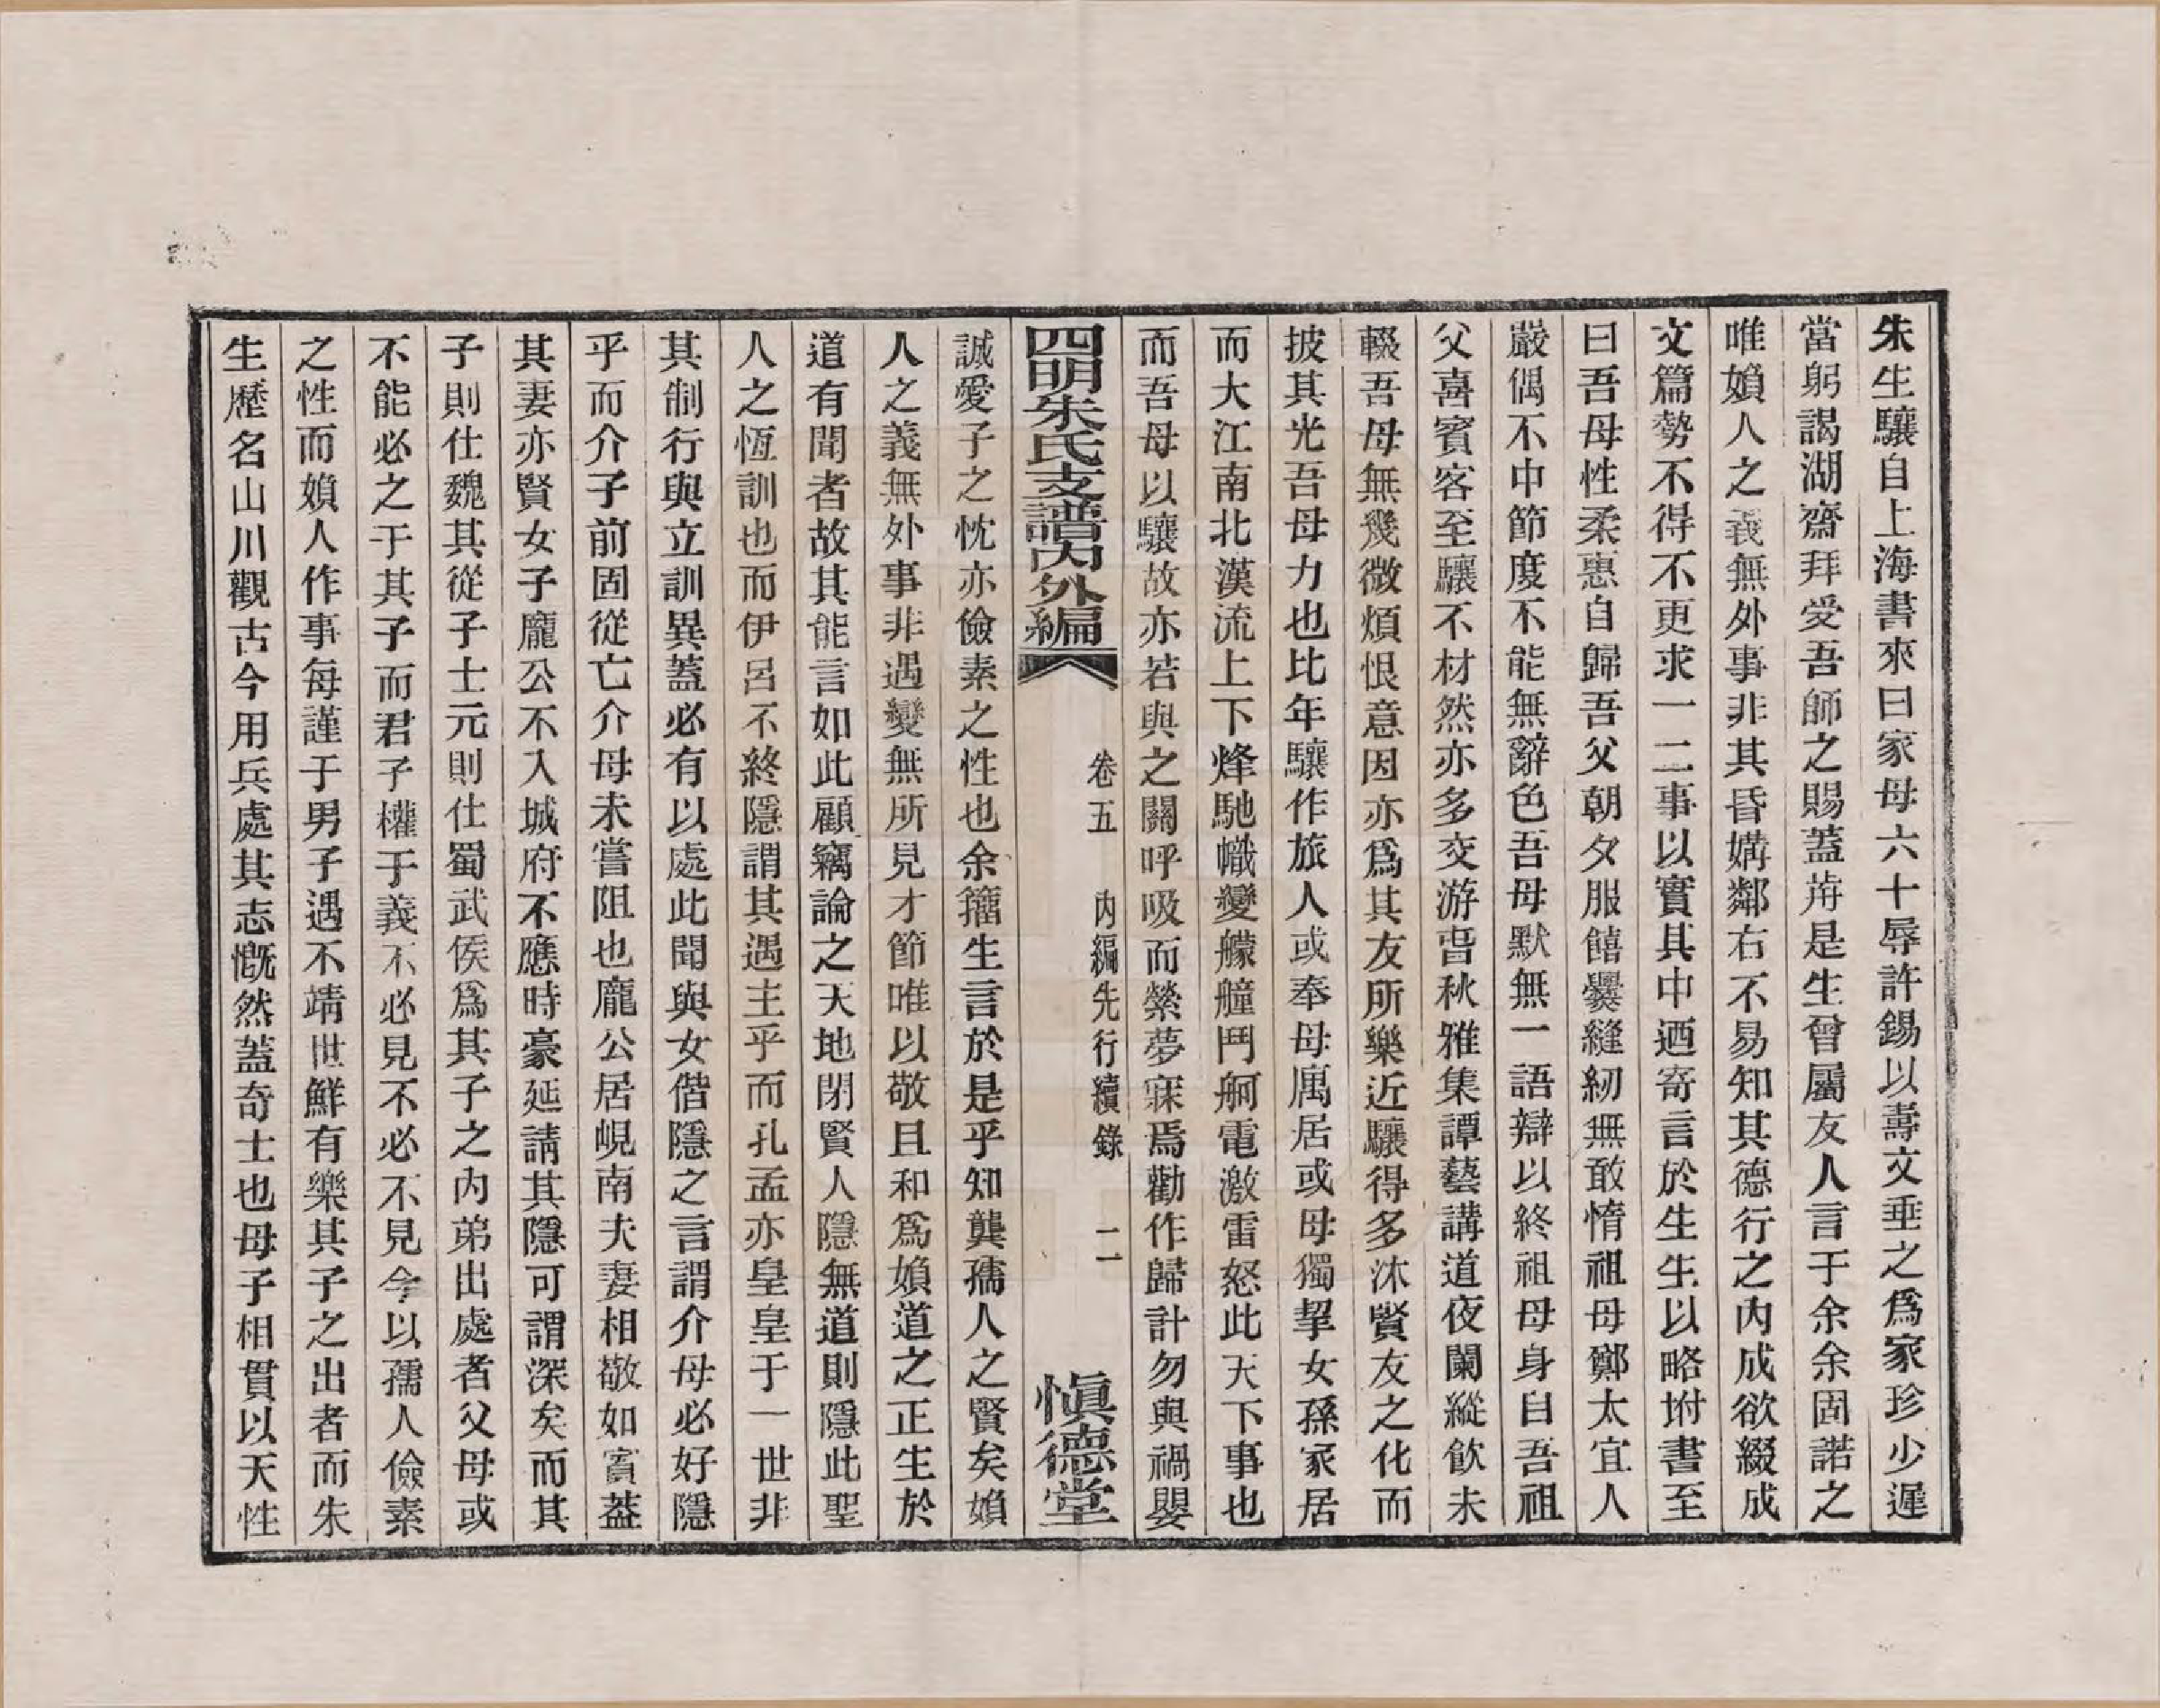 朱生驤自上海書來曰家母六十辱許錫以壽文垂之爲家珍少遲
當躬謁湖齋拜受吾師之賜蓋荐是生曾屬友人言于余余固諾之
唯媍人之義無外事非其昏媾鄰右不易知其德行之內成欲綴成
文篇勢不得不更求一二事以實其中迺寄言於生生以略坿書至
曰吾母性柔惠自歸吾父朝夕服饎爨縫紉無敢惰祖母鄭太宜人
嚴偶不中節度不能無辭色吾母默無一語辯以終祖母身自吾祖
父喜賓客至驤不材然亦多交游春秋雅集譚藝講道夜闌縱飲未
輟吾母無幾微煩恨意因亦爲其友所樂近驤得多沐賢友之化而
披其光吾母力也比年驤作旅人或奉母寓居或母獨挈女孫家居
而大江南北漢流上下烽馳幟變艨艟鬥舸電激雷怒此天下事也
而吾母以驤故亦若與之關呼吸而縈夢寐焉勸作歸計勿與禍嬰
四明朱氏支譜內外編
卷五 內編先行續錄 二
愼德堂
誠愛子之忱亦儉素之性也余籀生言於是乎知龔孺人之賢矣媍
人之義無外事非遇變無所見才節唯以敬且和爲媍道之正生於
道有聞者故其能言如此顧竊論之天地閉賢人隱無道則隱此聖
人之恆訓也而伊呂不終隱謂其遇主乎而孔孟亦皇皇于一世非
其制行與立訓異蓋必有以處此聞與女偕隱之言謂介母必好隱
乎而介子前固從亡介母未嘗阻也龐公居峴南夫妻相敬如賓葢
其妻亦賢女子龐公不入城府不應時豪延請其隱可謂深矣而其
子則仕魏其從子士元則仕蜀武侯爲其子之內弟出處者父母或
不能必之于其子而君子權于義不必見不必不見今以孺人儉素
之性而媍人作事每謹于男子遇不靖世鮮有樂其子之出者而朱
生歷名山川觀古今用兵處其志慨然蓋奇士也母子相貫以天性